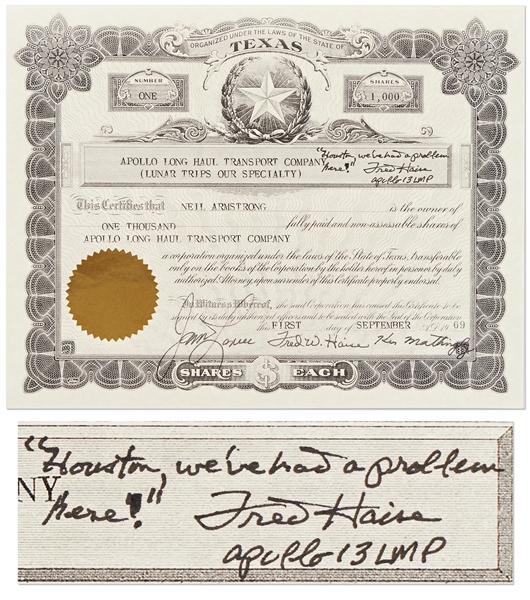 ORGANIZED UNDER THE LAWS OF THE STATE OF
TEXAS
NUMBER
ONE
SHARES
1,000
APOLLO LONG HAUL TRANSPORT COMPANY
(LUNAR TRIPS OUR SPECIALTY)
"Houston, we've had a problem
here!"
Fred Haise
apollo 13 LMP
This Certifies that NEIL ARMSTRONG is the owner of
ONE THOUSAND fully paid and non-assessable shares of
APOLLO LONG HAUL TRANSPORT COMPANY
a corporation organized under the laws of the State of Texas, transferable
only on the books of the Corporation by the holder hereof in person or by duly
authorized Attorney upon surrender of this Certificate properly endorsed.
In Witness Whereof, the said Corporation has caused this Certificate to be
signed by its duly authorized officers and to be sealed with the Seal of the Corporation
this FIRST day of SEPTEMBER A.D. 19 69
Fred W. Haise Ken Mattingly
SHARES $ EACH
"Houston, we've had a problem
NY
here!"
Fred Haise
apollo 13 LMP